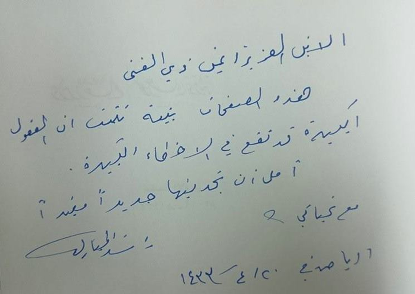 الابن العزيز أيمن ذوي الغنى
هذه الصفحات بينة تثبت ان العقول
الكبيرة قد تقع في الاخطاء الكبيرة .
آمل أن تجد فيها جديداً مفيداً
مع تحياتي
راشد المبارك
الرياض في ٢٠/٤/١٤٣٣